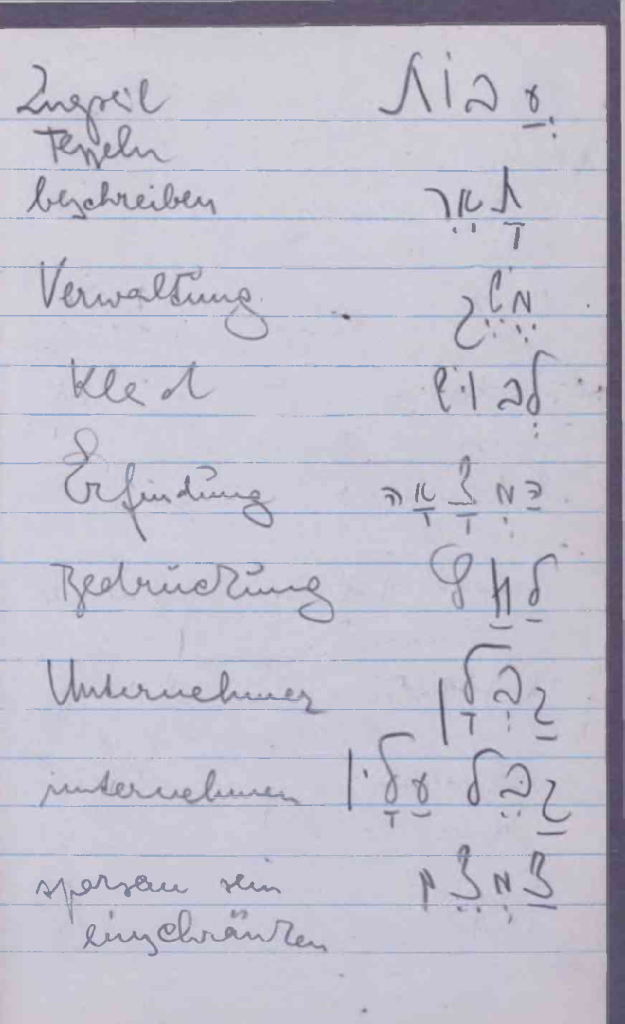 Zugseil עֲבוֹת
Fesseln
beschreiben תָאֵר
Verwaltung מֶשֶק
Kleid לְבוּש
Erfindung הַמְצָאָה
Bedrückung לַחַץ
Unternehmer קַבְלָן
unternehmen קַבֵל עַלָיו
sparsam sein צַמְצֵם
einschränken